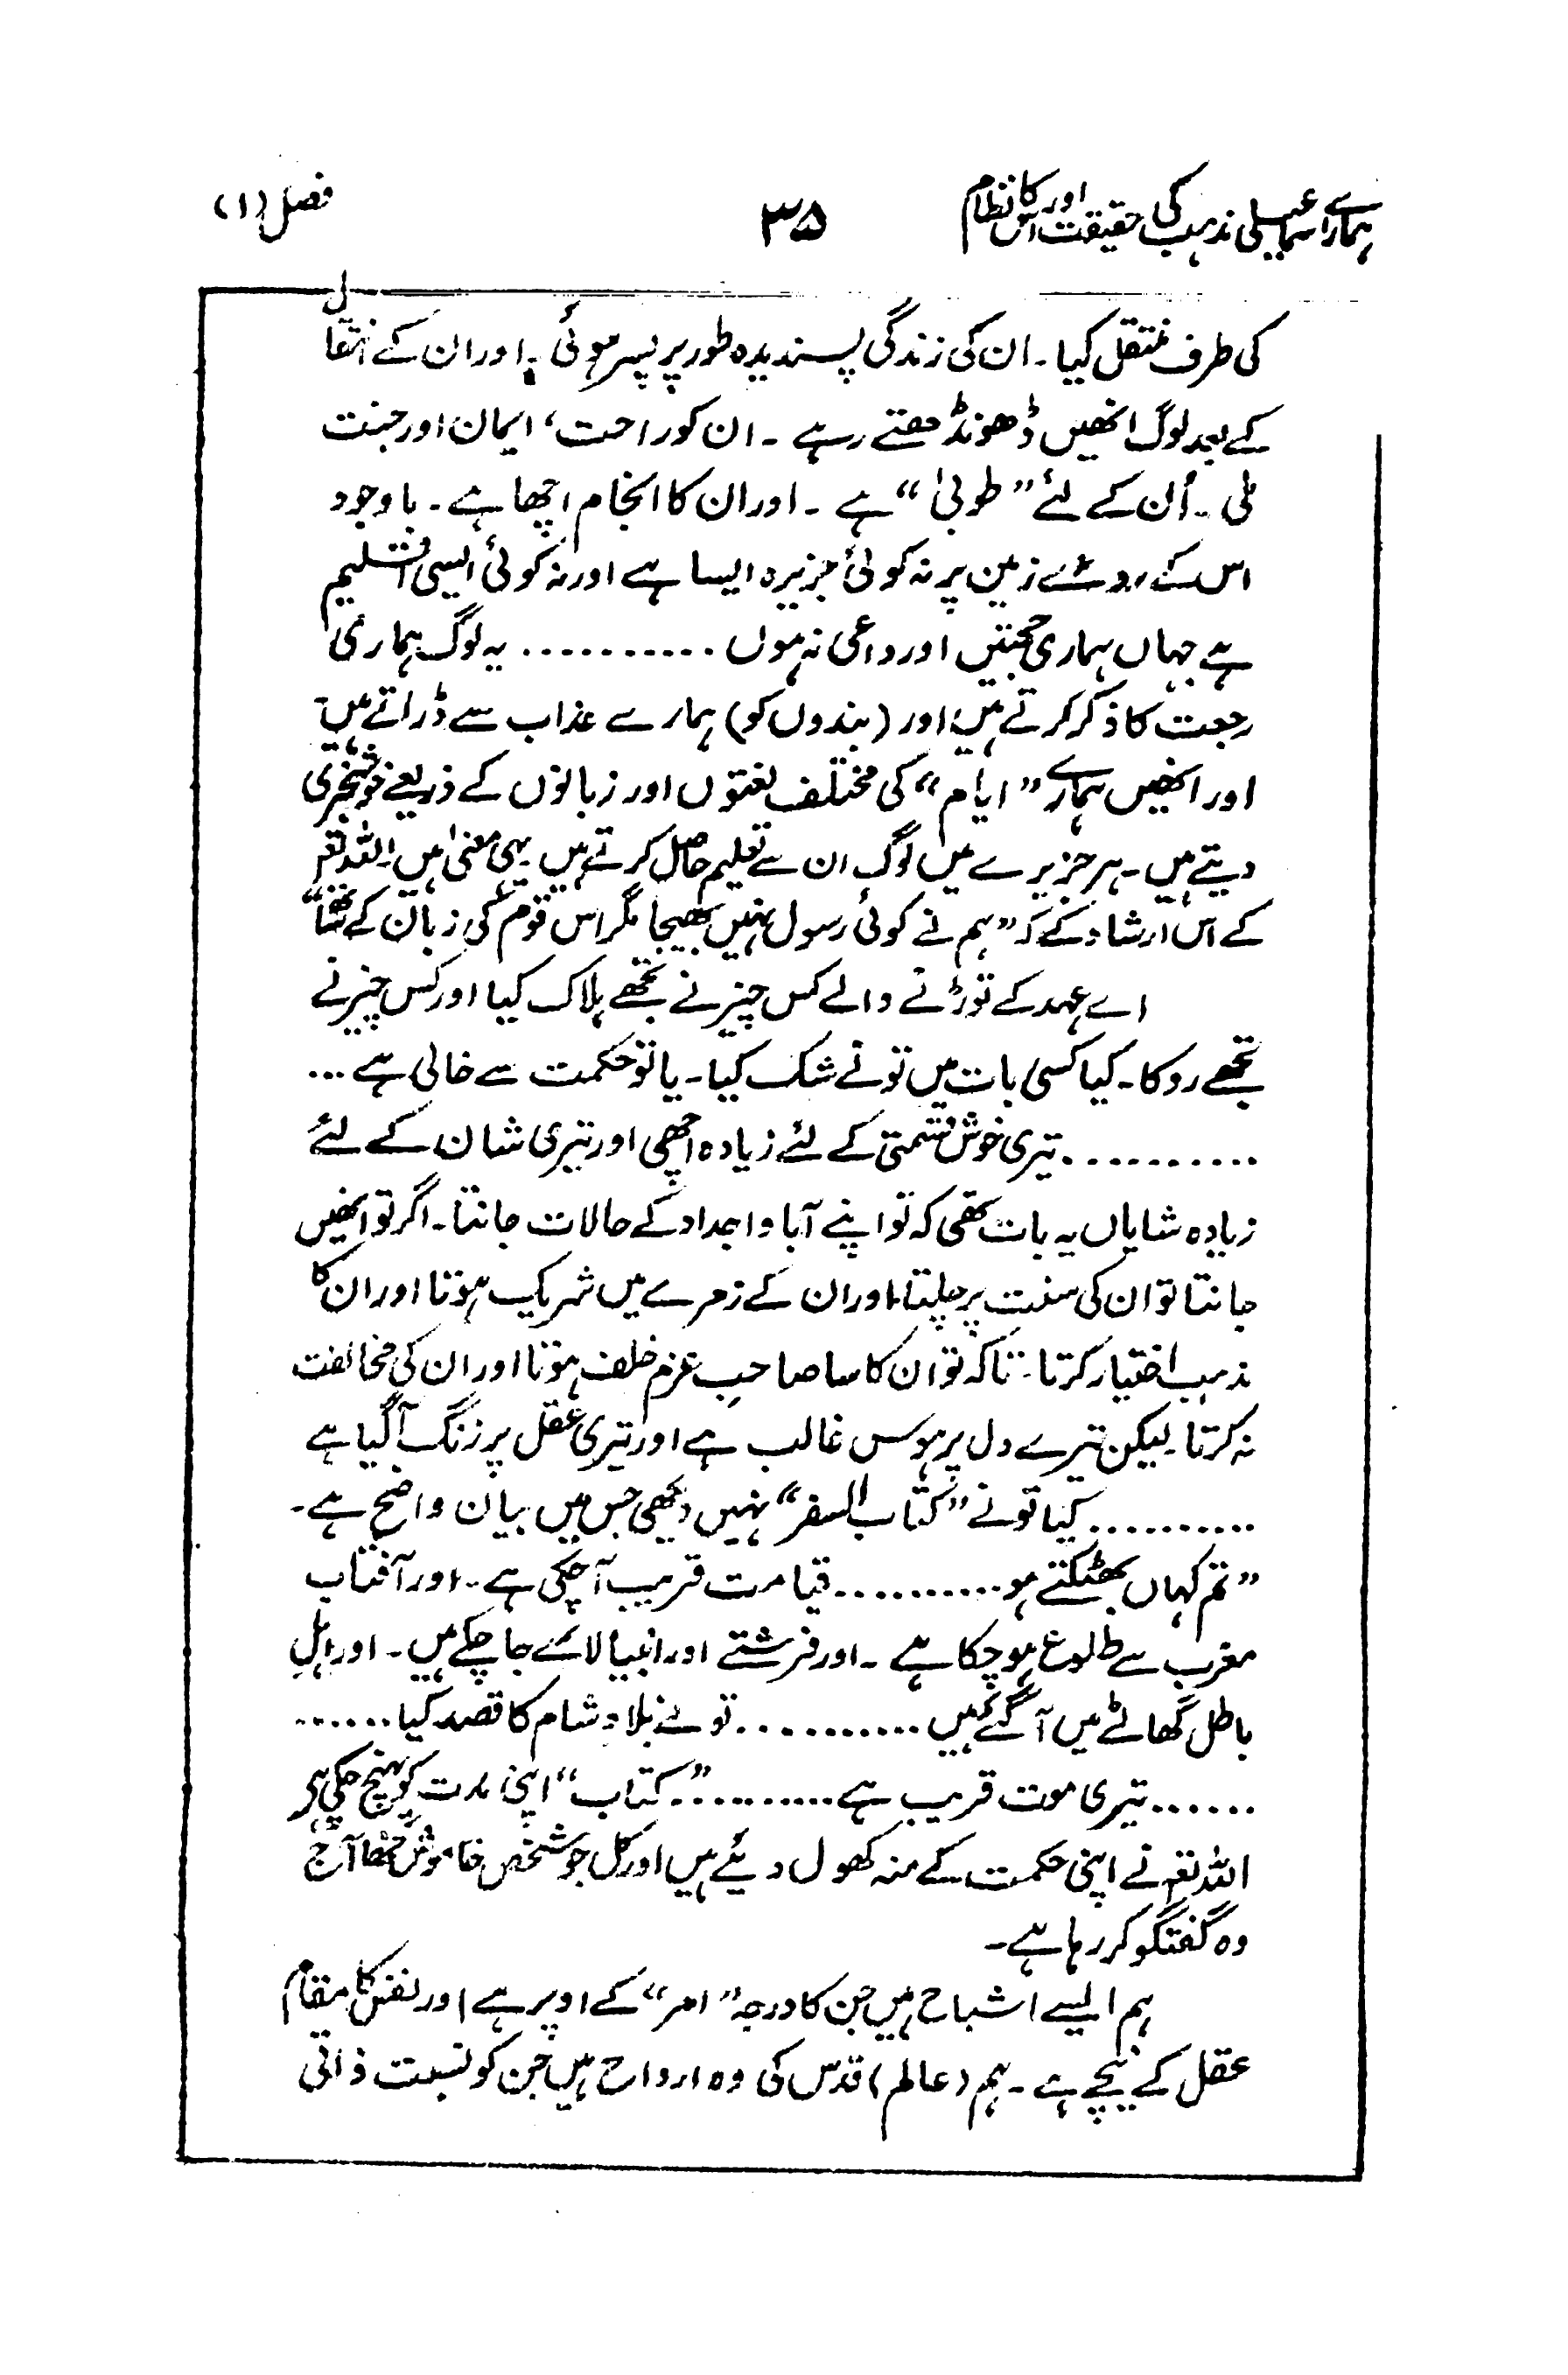 ہمارے اسماعیلی مذہب کی حقیقت اور اس کا نظام ۳۵ فصل (۱)
کی طرف منتقل کیا۔ ان کی زندگی پسندیدہ طور پر بسر ہوئی۔ اور ان کے انتقال
کے بعد لوگ انھیں ڈھونڈھتے رہے۔ ان کو راحت، ایمان اور جنت
ملی۔ اُن کے لئے ”طوبیٰ“ ہے۔ اور ان کا انجام اچھا ہے۔ باوجود
اس کے روئے زمین پر نہ کوئی جزیرہ ایسا ہے اور نہ کوئی ایسی اقلیم
ہے جہاں ہماری حجتیں اور داعی نہ ہوں .......... یہ لوگ ہماری
رجعت کا ذکر کرتے ہیں اور (بندوں کو) ہمارے عذاب سے ڈراتے ہیں
اور انھیں ہمارے ”ایام“ کی مختلف لغتوں اور زبانوں کے ذریعے خوشخبری
دیتے ہیں۔ ہر جزیرے میں لوگ ان سے تعلیم حاصل کرتے ہیں یہی معنیٰ ہیں اللہ تعہ
کے اس ارشاد کے کہ ”ہم نے کوئی رسول نہیں بھیجا مگر اس قوم کی زبان کے ساتھ“
اے عہد کے توڑنے والے کس چیز نے تجھے ہلاک کیا اور کس چیز نے
تجھے روکا۔ کیا کسی بات میں تو نے شک کیا۔ یا تو حکمت سے خالی ہے ...
.......... تیری خوش قسمتی کے لئے زیادہ اچھی اور تیری شان کے لئے
زیادہ شایاں یہ بات تھی کہ تو اپنے آبا و اجداد کے حالات جانتا۔ اگر تو انھیں
جانتا تو ان کی سنت پر چلتا اور ان کے زمرے میں شریک ہوتا اور ان کا
مذہب اختیار کرتا۔ تاکہ تو ان کا سا صاحبِ عزم خلف ہوتا اور ان کی مخالفت
نہ کرتا لیکن تیرے دل پر ہوس غالب ہے اور تیری عقل پر زنگ آگیا ہے
.......... کیا تو نے ”کتاب السفر“ نہیں دیکھی جس میں بیان واضح ہے۔
”تم کہاں بھٹکتے ہو .......... قیامت قریب آچکی ہے۔ اور آفتاب
مغرب سے طلوع ہوچکا ہے۔ اور فرشتے اور انبیا لائے جا چکے ہیں۔ اور اہلِ
باطل گھاٹے میں آگئے ہیں .......... تو نے بلاد شام کا قصد کیا ......
...... تیری موت قریب ہے .......... ”کتاب“ اپنی مدت کو پہنچ چکی ہے
اللہ تعہ نے اپنی حکمت کے منہ کھول دیئے ہیں اور کل جو شخص خاموش تھا آج
وہ گفتگو کر رہا ہے۔
ہم ایسے اشباح ہیں جن کا درجہ ”امر“ کے اوپر ہے اور نفس کا مقام
عقل کے نیچے ہے۔ ہم (عالم) قدس کی وہ ارواح ہیں جن کو نسبت ذاتی